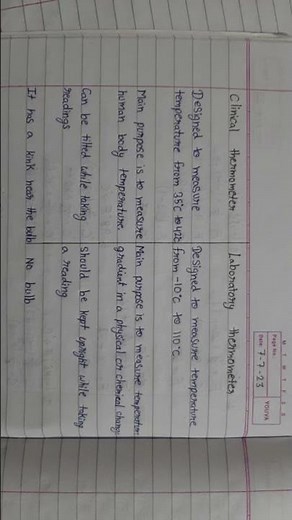 M T W T F S S
Page No.:
Date: 7-7-23
YOUVA
Clinical thermometer Laboratory thermometer
Designed to measure Designed to measure temperature
temperature from 35°c to 42°c from -10°c to 110°c.
Main purpose is to measure Main purpose is to measure temperature
human body temperature. gradient in a physical or chemical change
Can be tilted while taking should be kept upright while taking
readings. a reading
It has a kink near the bulb No bulb